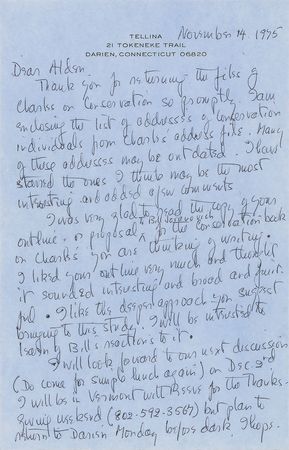 TELLINA
21 TOKENEKE TRAIL
DARIEN, CONNECTICUT 06820
November 14, 1975
Dear Alden,
Thank you for returning the files of
Charles on Conservation so promptly. I am
enclosing the list of addresses of Conservation
individuals from Charles' address files. Many
of these addresses may be out dated. I have
starred the ones I think may be the most
interesting and added a few comments
I was very glad to read the copy of your
outline or proposal to Bill Jovanovich for the Conservation book
on Charles you are thinking of writing.
I liked your outline very much and thought
it sounded interesting and broad and fruit-
ful. I like the deeper approach you suggest
bringing to this study. I will be interested to
learn of Bill's reactions to it.
I will look forward to our next discussion
(Do come for simple lunch again) on Dec. 3rd
I will be in Vermont with Reeve for the Thanks-
giving weekend (802-592-3567) but plan to
return to Darien Monday before dark I hope.